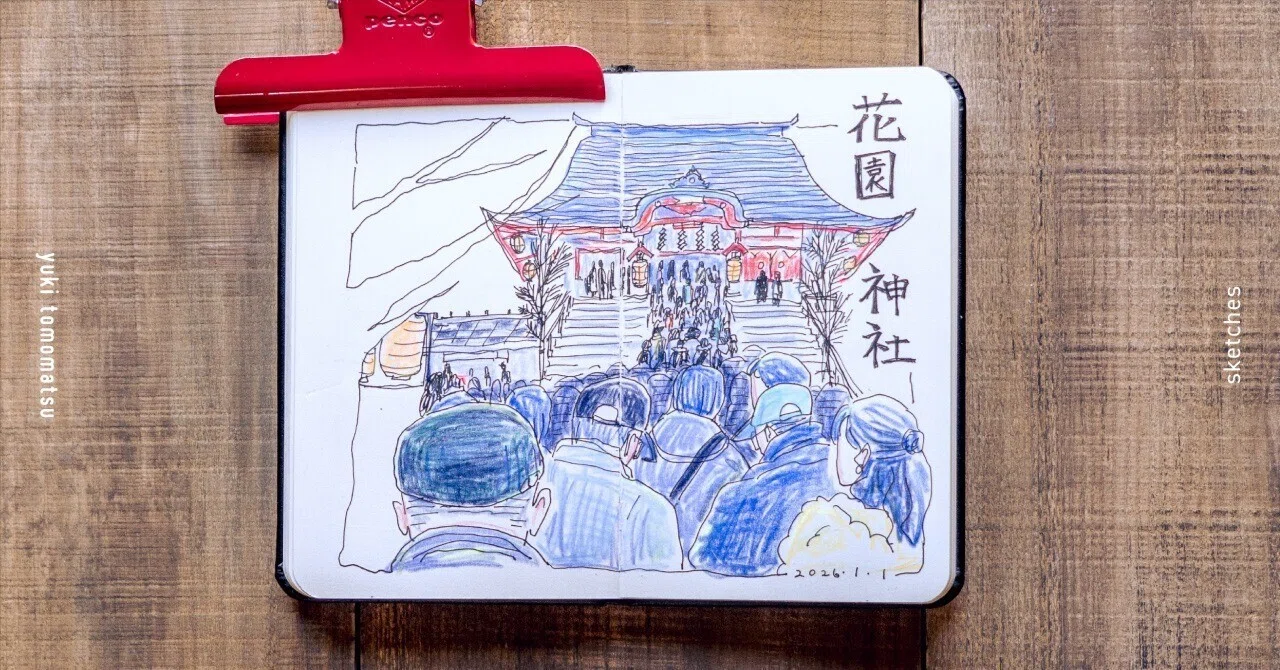 penco
®
花園
神社
2026.1.1
yuki tomomatsu
sketches